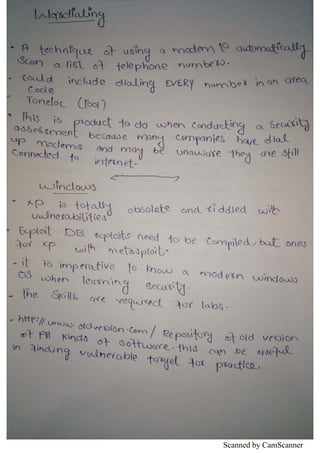 Wardialing
- A technique of using a modem to automatically
scan a list of telephone numbers.
- could include dialing EVERY number in an area
code
- Toneloc (Tool)
- This is product to do when conducting a security
assessment because many companies have dial
up modems and may be unaware they are still
connected to internet.
Windows
- XP is totally obsolate and riddled with
vulnerabilities
- Exploit DB exploits need to be compiled, but ones
for XP with metasploit.
- it is imperative to know a modern windows
OS when learning security.
- The skills are required for labs.
- http://www.oldversion.com/ Repository of old vesion
of All kinds of software. this can be useful
in finding vulnerable target for practice.
Scanned by CamScanner